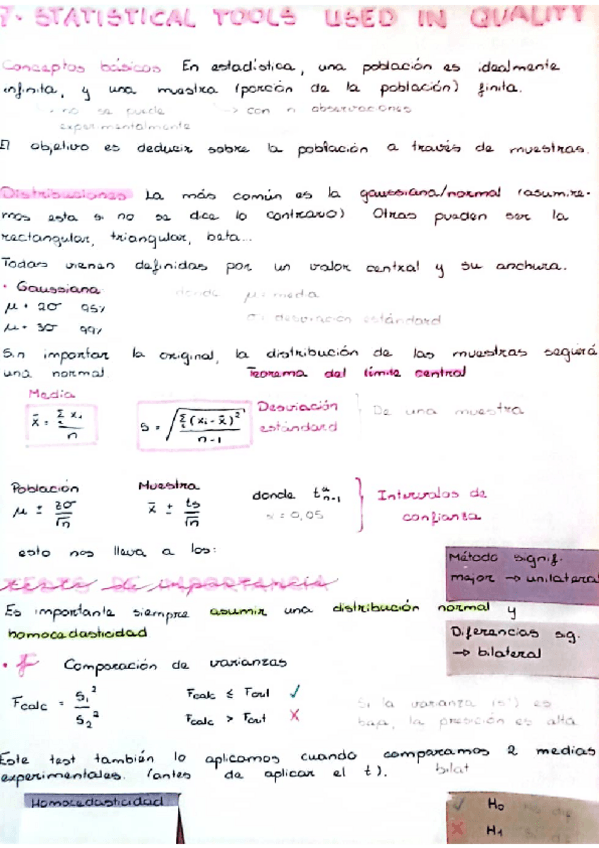 7. STATISTICAL TOOLS USED IN QUALITY
Conceptos básicos En estadística, una población es idealmente
infinita, y una muestra (porción de la población) finita.
· no se puede experimentalmente
→ con n observaciones
El objetivo es deducir sobre la población a través de muestras.
Distribuciones La más común es la gaussiana/normal (asumire-
mos esta si no se dice lo contrario) Otras pueden ser la
rectangular, triangular, beta...
Todas vienen definidas por un valor central y su anchura.
· Gaussiana donde μ = media
μ ± 2σ 95%
σ = desviación estándard
μ ± 3σ 99%
Sin importar la original, la distribución de las muestras seguirá
una normal. Teorema del límite central
Media
x̄ = Σ xi / n
s = √(Σ (xi - x̄)² / n-1)
Desviación estándard
De una muestra
Población Muestra
μ ± zσ/√n
x̄ ± ts/√n
donde t α n-1
α = 0,05
Intervalos de confianza
esto nos lleva a los:
TESTS DE IMPORTANCIA
Método signif.
mejor → unilateral
Es importante siempre asumir una distribución normal y
homocedasticidad
Diferencias sig.
→ bilateral
· F Comparación de varianzas
Fcalc = S1² / S2²
Fcalc ≤ Fcrit ✓
Fcalc > Fcrit X
Si la varianza (s²) es
baja, la precisión es alta
Este test también lo aplicamos cuando comparamos 2 medias
experimentales. (antes de aplicar el t). bilat
Homocedasticidad
✓ H0 no
X H1